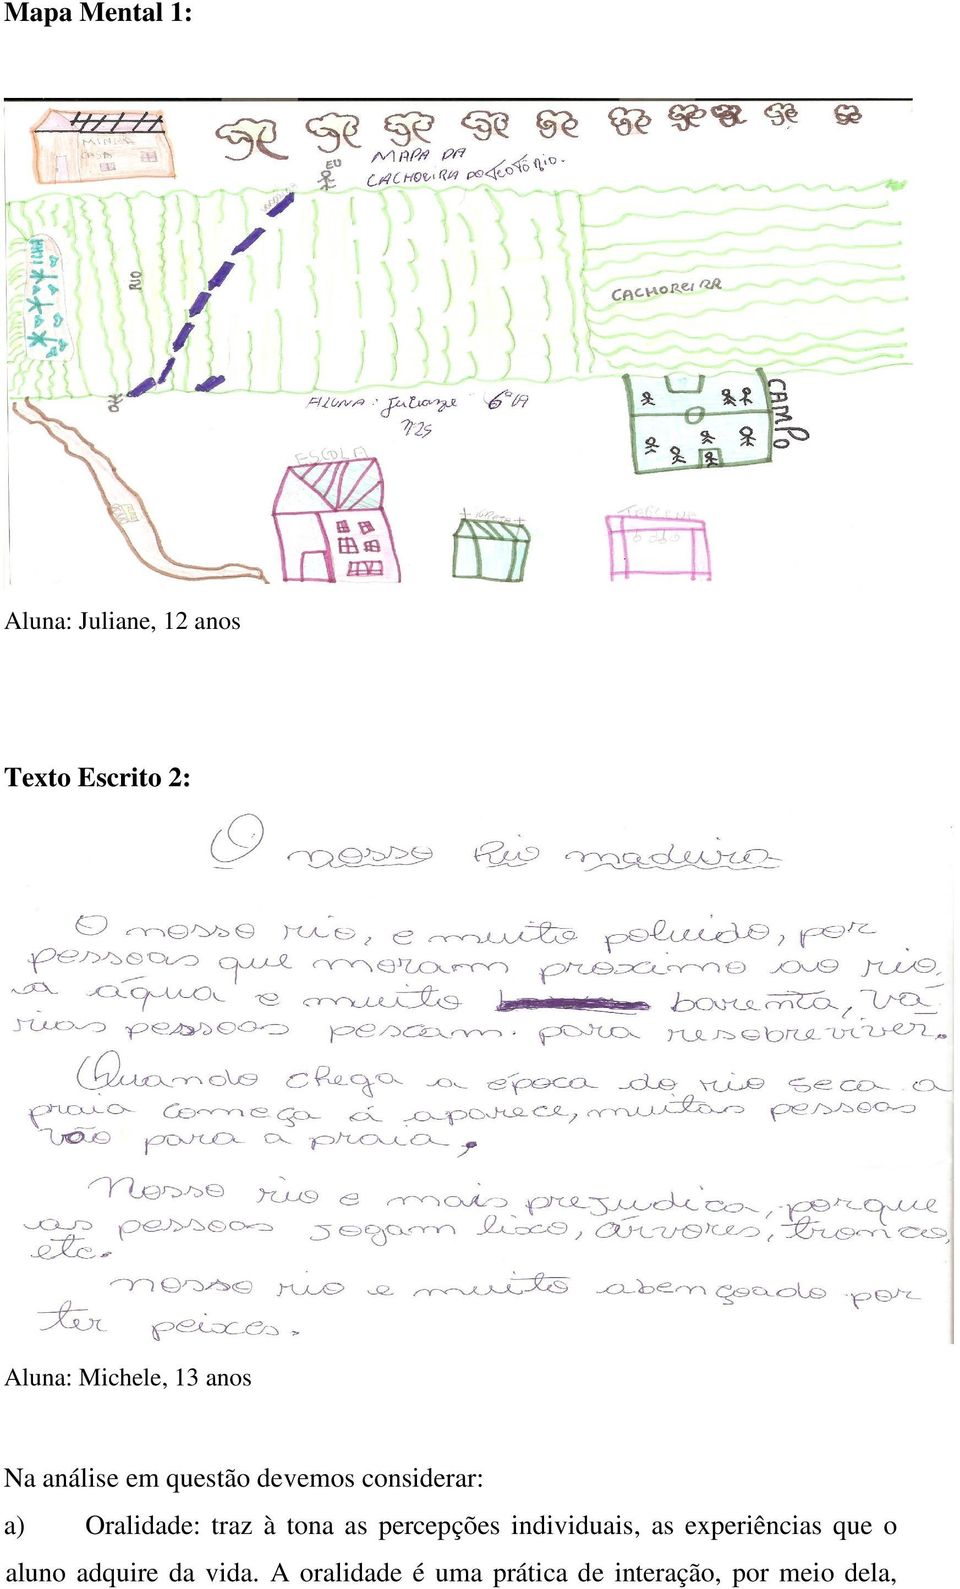 Mapa Mental 1:
MINHA
CASA
EU
MAPA DA
CACHOEIRA DO TEOTÔNIO.
ILHA
RIO
CACHOREIRA
ALUNA: Juliane 6ºA
Nº25
CAMPO
ESCOLA
Aluna: Juliane, 12 anos
Texto Escrito 2:
O nosso Rio madeira
O nosso rio, e muito poluido, por
pessoas que moram proximo ao rio,
a água e muito barenta, vá
rias pessoas pescam para resobreviver.
Quando chega a época do rio seca a
praia começa á aparece, muitas pessoas
vão para a praia,
Nosso rio e mais prejudica, porque
as pessoas jogam lixo, árvores, tronco,
etc.
nosso rio e muito abençoado por
ter peixes.
Aluna: Michele, 13 anos
Na análise em questão devemos considerar:
a) Oralidade: traz à tona as percepções individuais, as experiências que o
aluno adquire da vida. A oralidade é uma prática de interação, por meio dela,